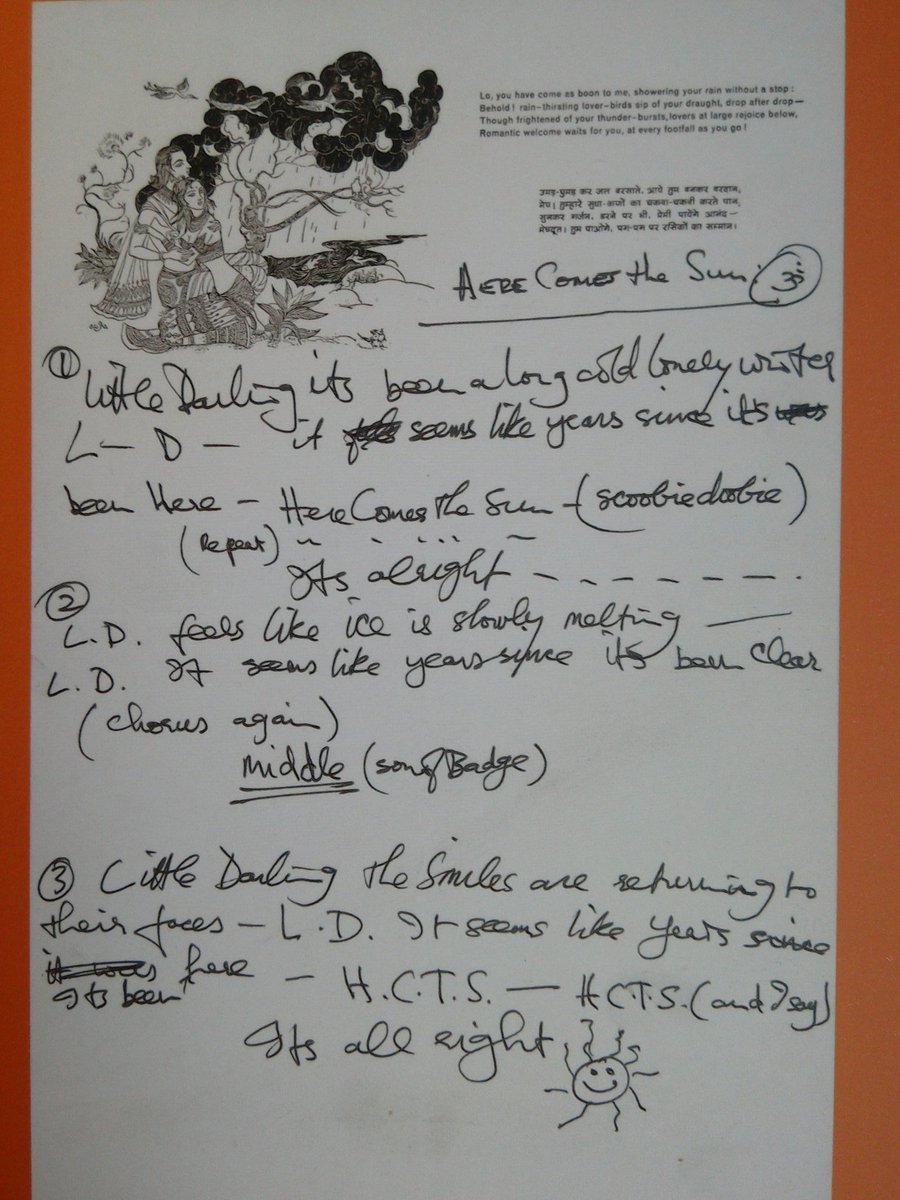 Lo, you have come as boon to me, showering your rain without a stop:
Behold! rain-thirsting lover-birds sip of your draught, drop after drop—
Though frightened of your thunder-bursts, lovers at large rejoice below,
Romantic welcome waits for you, at every footfall as you go!
उमड़-घुमड़ कर जल बरसाते, आये तुम बनकर वरदान,
मेघ! तुम्हारे सुधा-कणों का चकवा-चकवी करते पान,
सुनकर गर्जन, डरने पर भी, प्रेमी पायेंगे आनंद—
मेघदूत! तुम पाओगे, पग-पग पर रसिकों का सम्मान।
HERE Comes the Sun. ॐ
① Little Darling its been a long cold lonely winter
L — D — it seems like years since its
been Here — Here Comes The Sun — (scoobie doobie)
(Repeat)
Its alright — — — — — — — .
②
L.D. feels like ice is slowly melting —
L.D. It seems like years since its been clear
(chorus again)
middle (son of Badge)
③ Little Darling the Smiles are returning to
their faces — L.D. It seems like years since
it was here — H.C.T.S. — H.C.T.S. (and I say)
Its been
Its all right